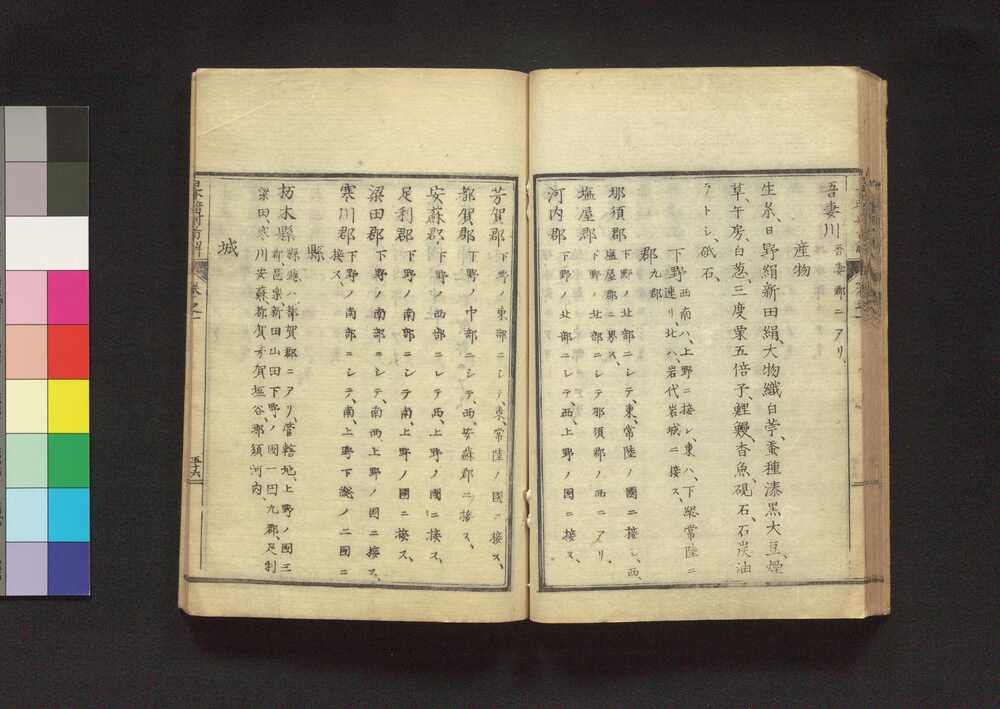 吾妻川 吾妻郡ニアリ、
産物
生糸、日野絹新田絹、大物織白苧、蚕種漆黒大豆、煙
草、午房、白葱、三度栗五倍子、鯉鰻、香魚、硯石、石炭油
ヲトシ、砥石、
下野 西南ハ、上野ニ接シ東ハ、下総常陸ニ
連リ、北ハ、岩代岩城ニ接ス、
郡 九郡
那須郡 下野ノ北部ニシテ、東、常陸ノ國ニ接シ、西、
塩屋郡ニ界ス、
塩屋郡 下野ノ北部ニシテ那須郡ノ西ニアリ、
河内郡 下野ノ北部ニシテ、西、上野ノ國ニ接ス、
芳賀郡 下野ノ東部ニシテ、東、常陸ノ國ニ接ス、
都賀郡 下野ノ中部ニシテ、西、安蘇郡ニ接ス、
安蘇郡 下野ノ西部ニシテ西、上野ノ國ニ接ス、
足利郡 下野ノ南部ニシテ南、上野ノ國ニ接ス、
梁田郡 下野ノ南部ニシテ、南西、上野ノ國ニ接ス、
寒川郡 下野ノ南部ニシテ、南、上野下総ノ二國ニ
接ス、
縣
栃木縣 縣廳ハ、都賀郡ニアリ、管轄地、上野ノ國三
郡、邑楽、新田山田下野ノ國一圓九郡、足利
梁田、寒川安蘇、都賀芳賀塩谷、那須河内、
城
五十六